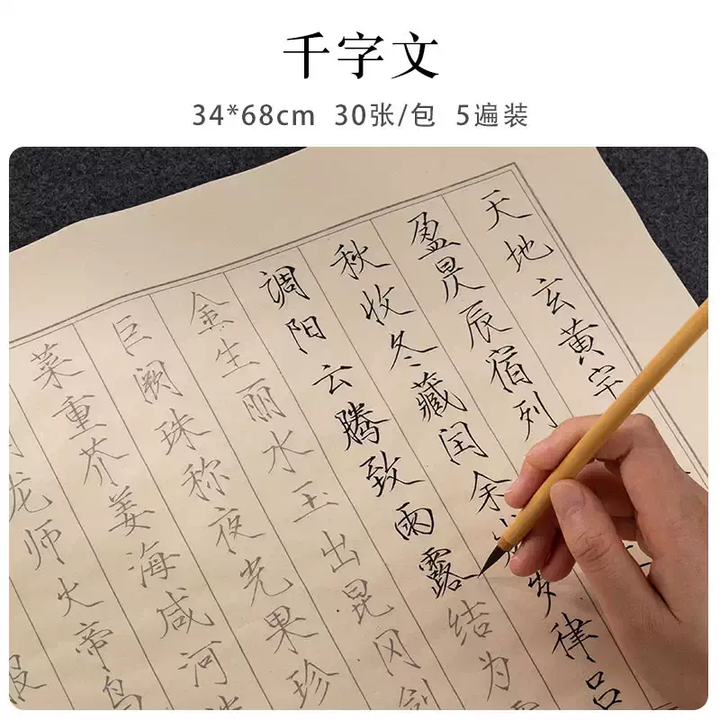 千字文
34*68cm 30张/包 5遍装
天地玄黄宇
盈昃辰宿列
秋收冬藏闰余成岁律吕
调阳云腾致雨露结为
金生丽水玉出昆冈剑
巨阙珠称夜光果珍
菜重芥姜海咸河
龙师火帝鸟